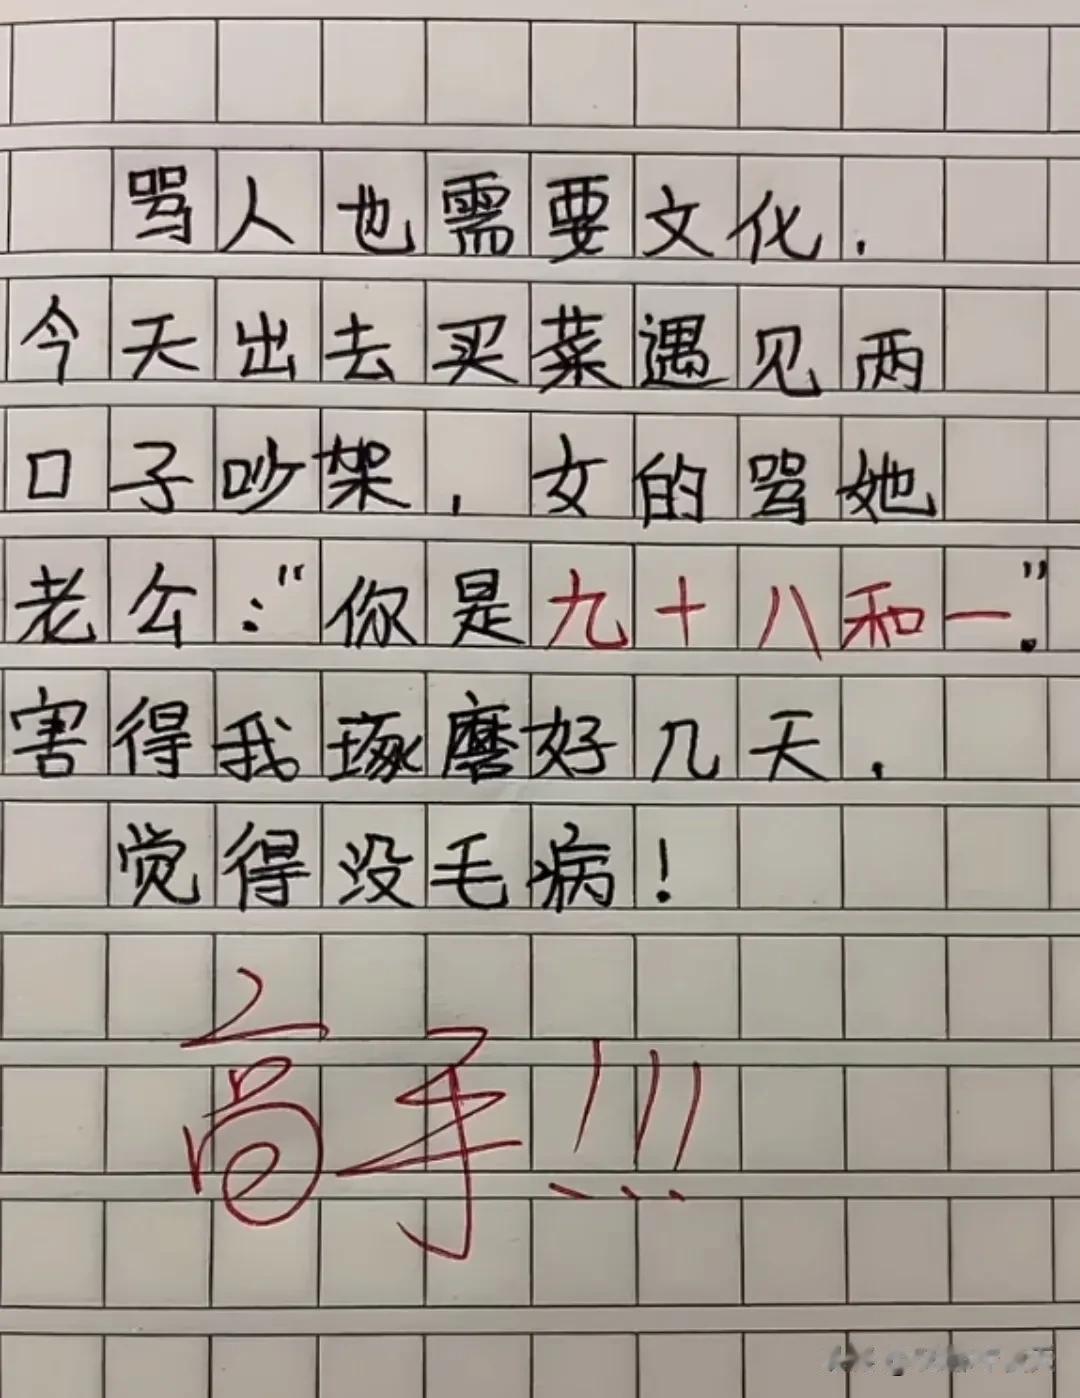 骂人也需要文化.
今天出去买菜遇见两
口子吵架，女的骂她
老公："你是九十八和一."
害得我琢磨好几天.
觉得没毛病!
高手!!!